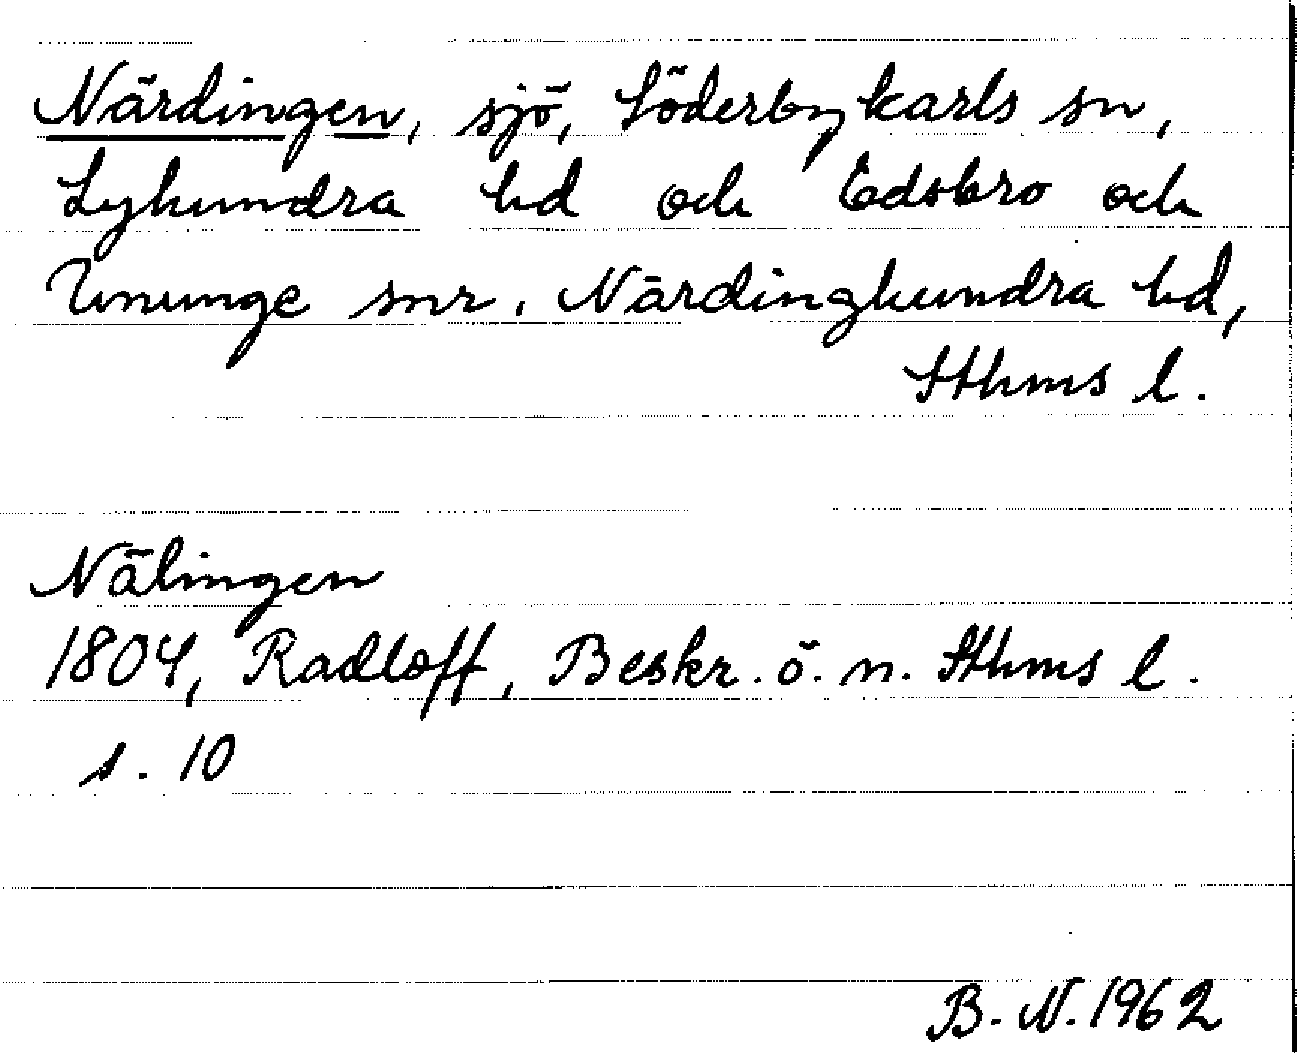 Närdingen, sjö, Söderbykarls sn,
Lyhundra hd och Edsbro och
Ununge snr, Närdinghundra hd,
Sthms l.
Nälingen
1804, Radloff, Beskr. ö. n. Sthms l.
s. 10
B. N. 1962